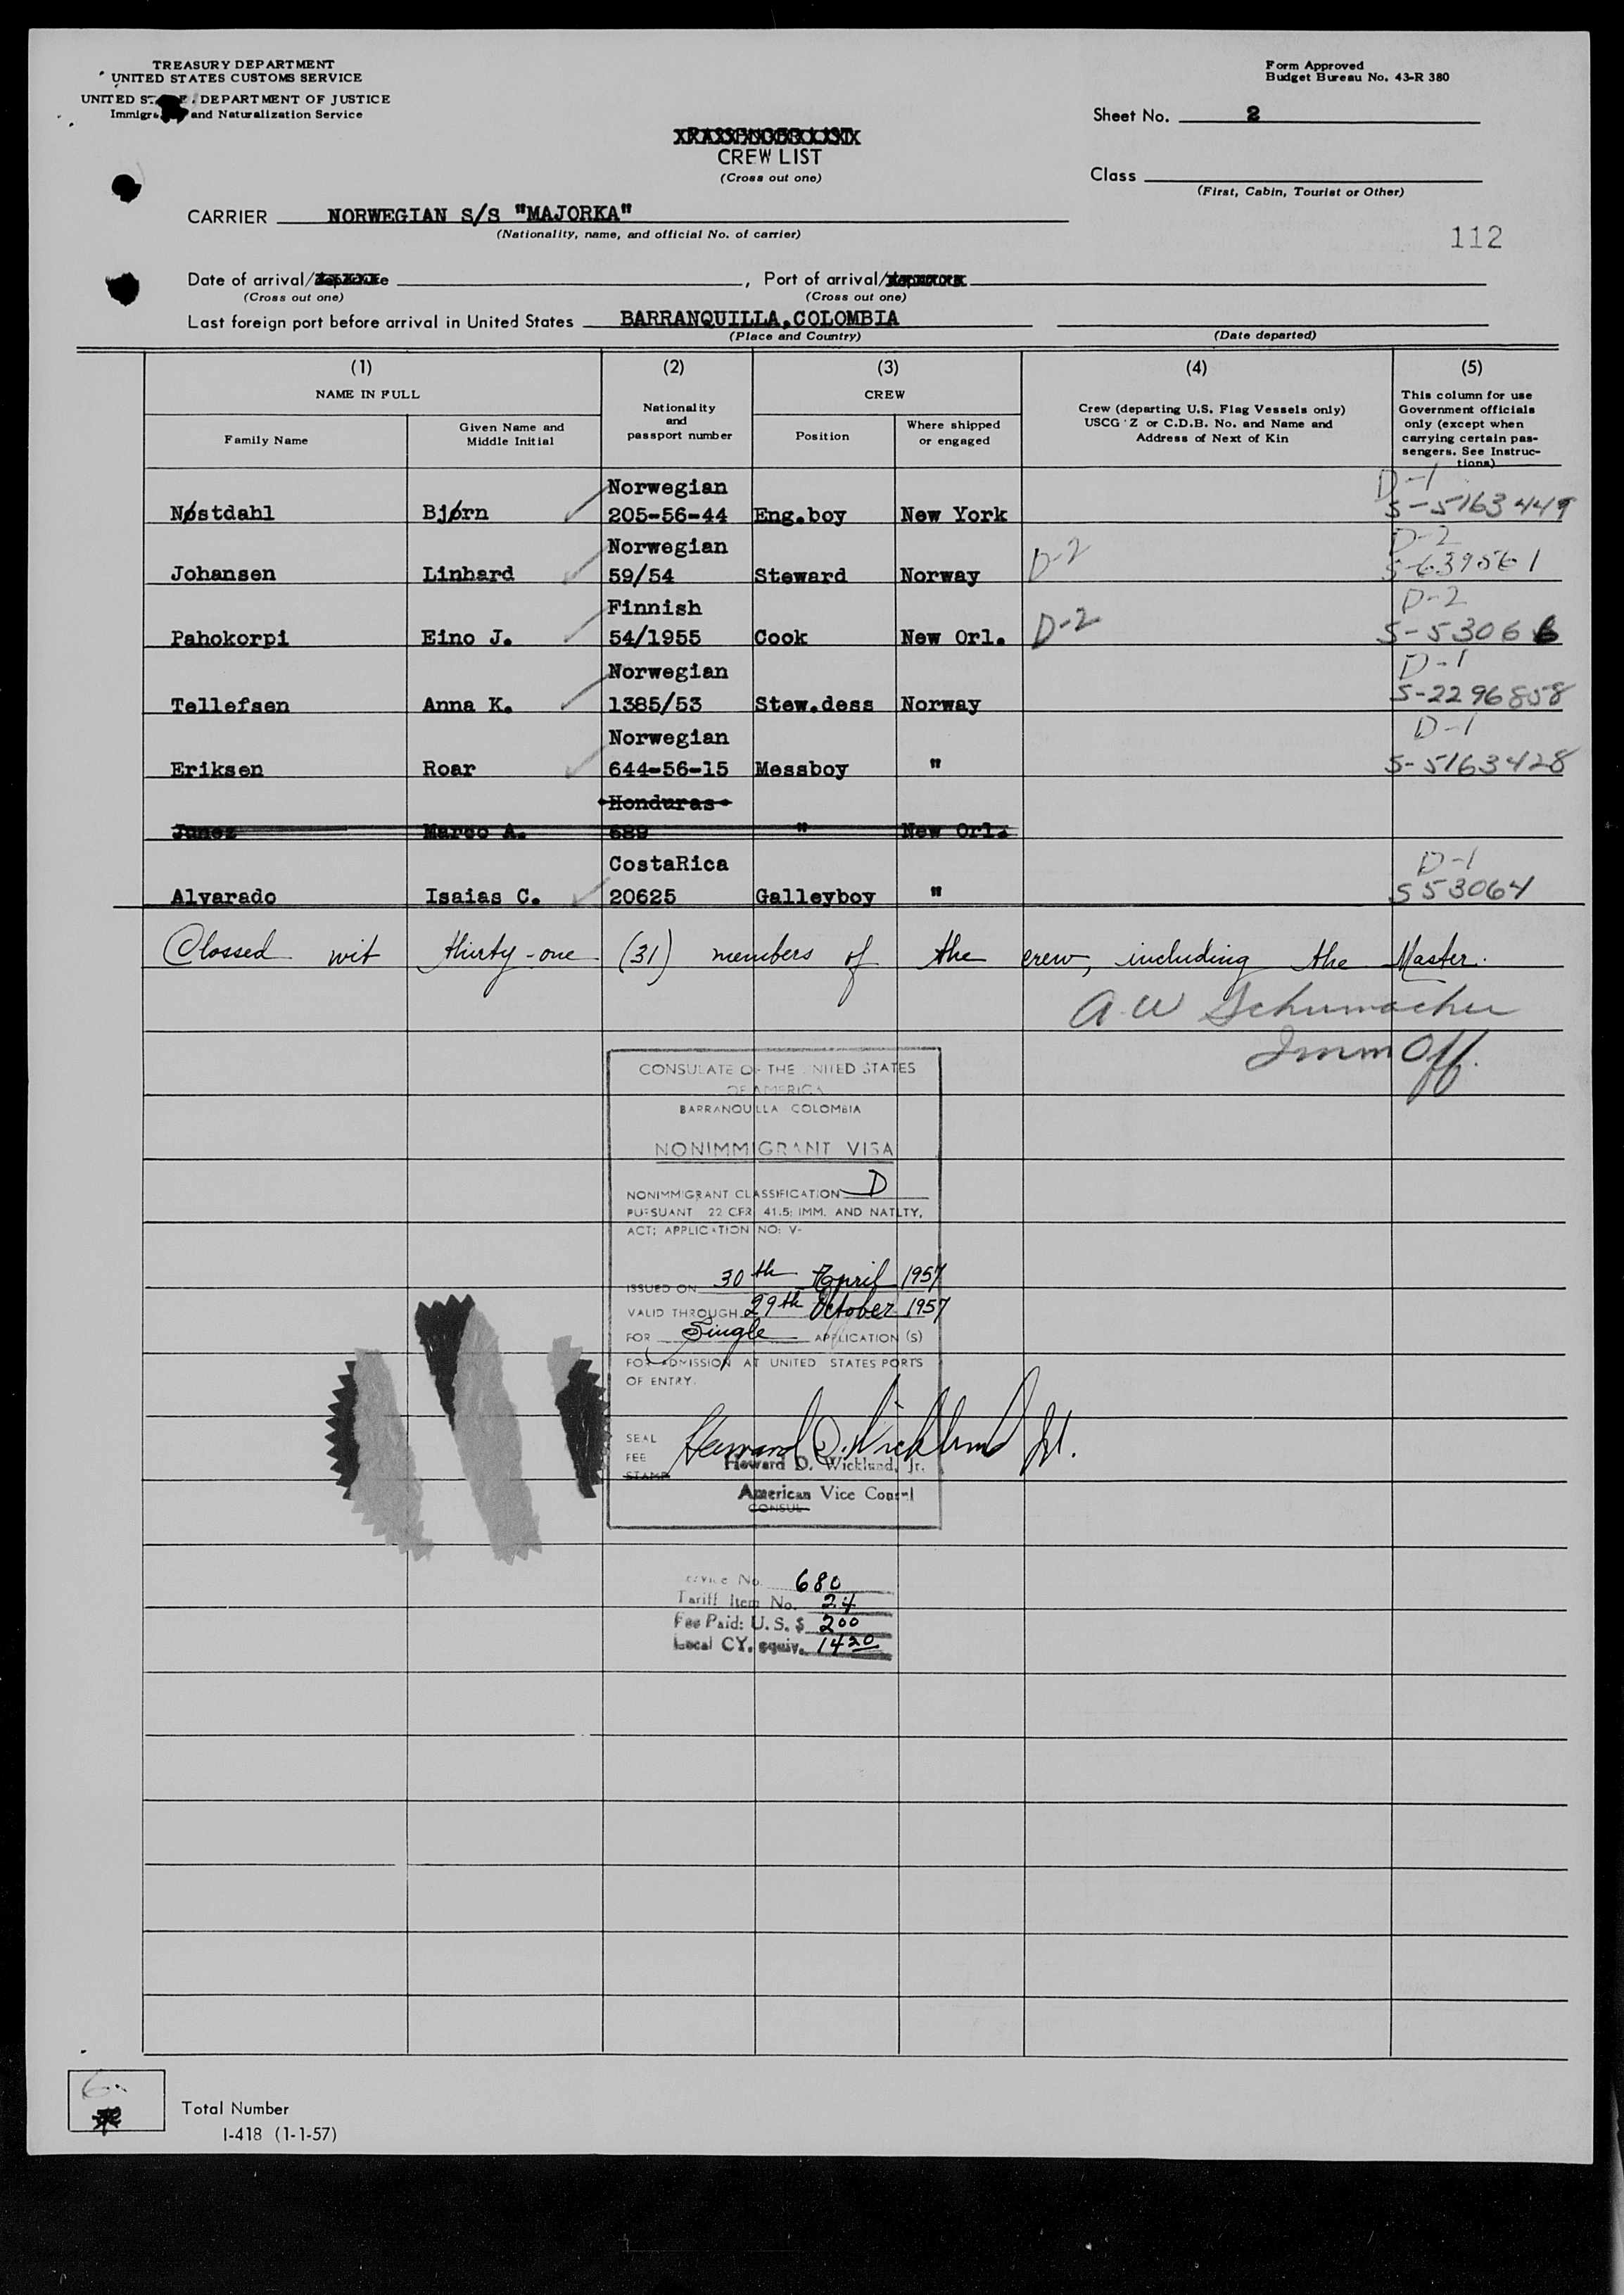 TREASURY DEPARTMENT
UNITED STATES CUSTOMS SERVICE
UNITED DEPARTMENT OF JUSTICE
and Naturalization Service
Form Approved
Budget Bureau No. 43-R 380
Sheet No. 2
CREW LIST
(Cross out one)
Class
(First, Cabin, Tourist or Other)
CARRIER NORWEGIAN S/S "MAJORKA"
(Nationality, name, and official No. of carrier)
112
Date of arrival/ , Port of arrival/
(Cross out one) (Cross out one)
Last foreign port before arrival in United States BARRANQUILLA,COLOMBIA
(Place and Country) (Date departed)
(1) (2) (3) (4) (5)
NAME IN FULL
Family Name
Given Name and
Middle Initial
Nationality
and
passport number
CREW
Position
Where shipped
or engaged
Crew (departing U.S. Flag Vessels only)
USCG Z or C.D.B. No. and Name and
Address of Next of Kin
This column for use
Government officials
only (except when
carrying certain pas-
sengers. See Instruc-
tions)
Norwegian D-1
Nøstdahl Bjørn 205-56-44 Eng.boy New York S-5163449
Norwegian D-2
Johansen Linhard 59/54 Steward Norway D-2 S-639561
Finnish D-2
Pahokorpi Eino J. 54/1955 Cook New Orl. D-2 S-5306
Norwegian D-1
Tellefsen Anna K. 1385/53 Stew.dess Norway S-2296858
Norwegian D-1
Eriksen Roar 644-56-15 Messboy " S-5163428
Honduras
Junez Marco A. 689 " New Orl.
CostaRica D-1
Alvarado Isaias C. 20625 Galleyboy " S53064
Clossed wit thirty-one (31) members of the crew, including the Master.
A.W Schumacher
Imm Off.
CONSULATE OF THE UNITED STATES
OF AMERICA
BARRANQUILLA COLOMBIA
NONIMMIGRANT VISA
NONIMMIGRANT CLASSIFICATION D
PURSUANT 22 CFR 41.5; IMM. AND NATLTY,
ACT; APPLICATION NO: V-
ISSUED ON 30th April 1957
VALID THROUGH 29th October 1957
FOR Single APPLICATION (S)
FOR ADMISSION AT UNITED STATES PORTS
OF ENTRY.
SEAL
FEE
STAMP
Howard D. Wicklund Jr.
Howard D. Wicklund, Jr.
American Vice Consul
CONSUL
Service No. 680
Tariff Item No. 24
Fee Paid: U.S. $ 200
Local CY. equiv. 1420
Total Number
I-418 (1-1-57)